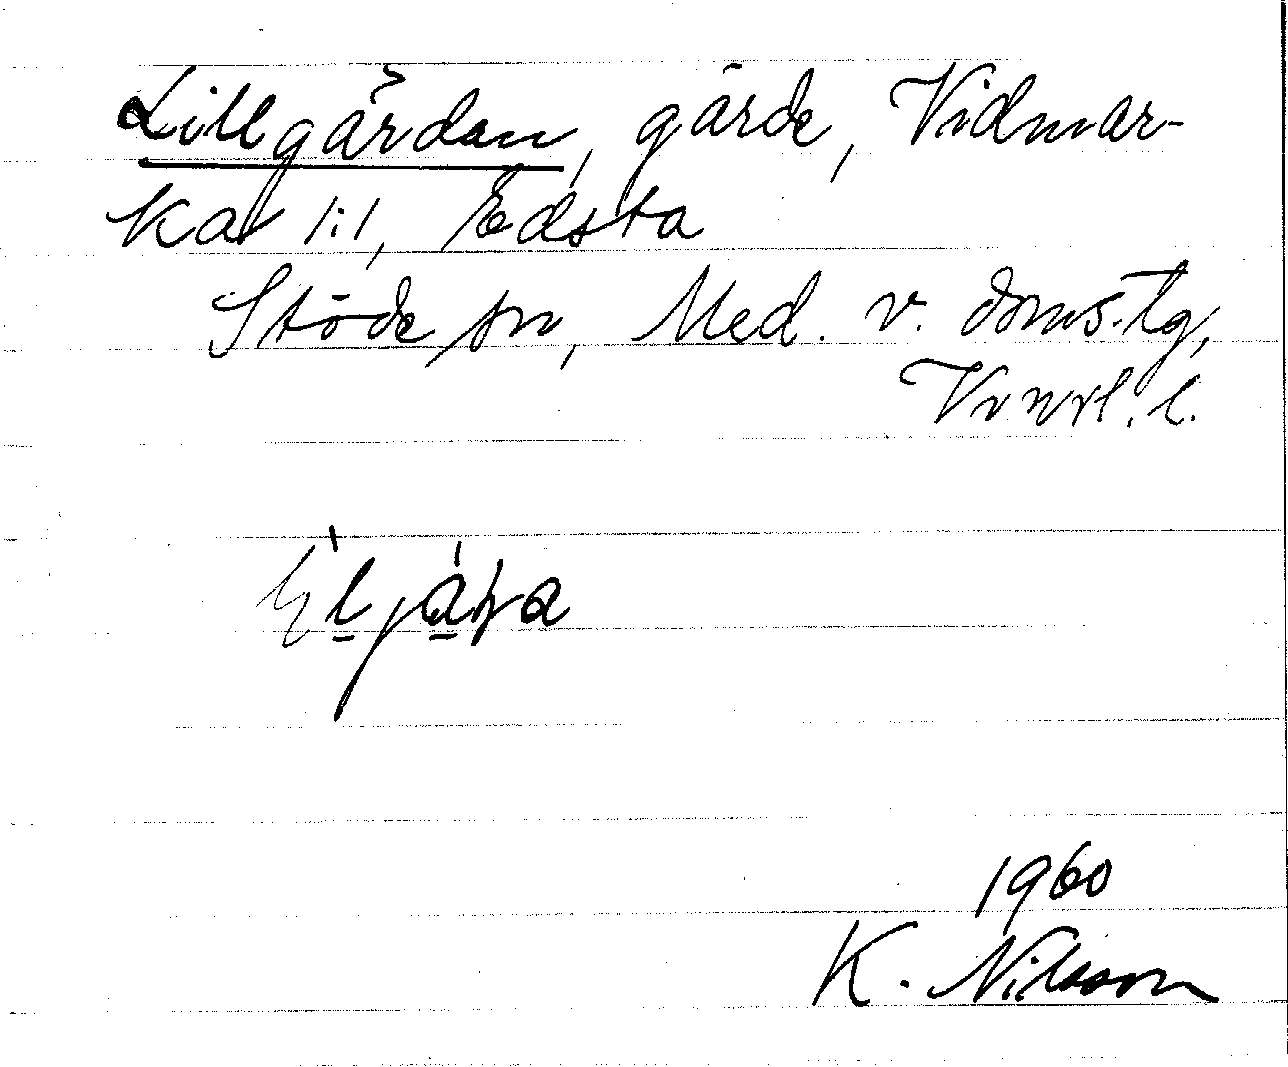 Lillgårdan, gärde, Vidmar-
kar 1:1, Edsta
Stöde sn, Med. v. doms.tg,
Vnrl. l.
1960
K. Nilsson